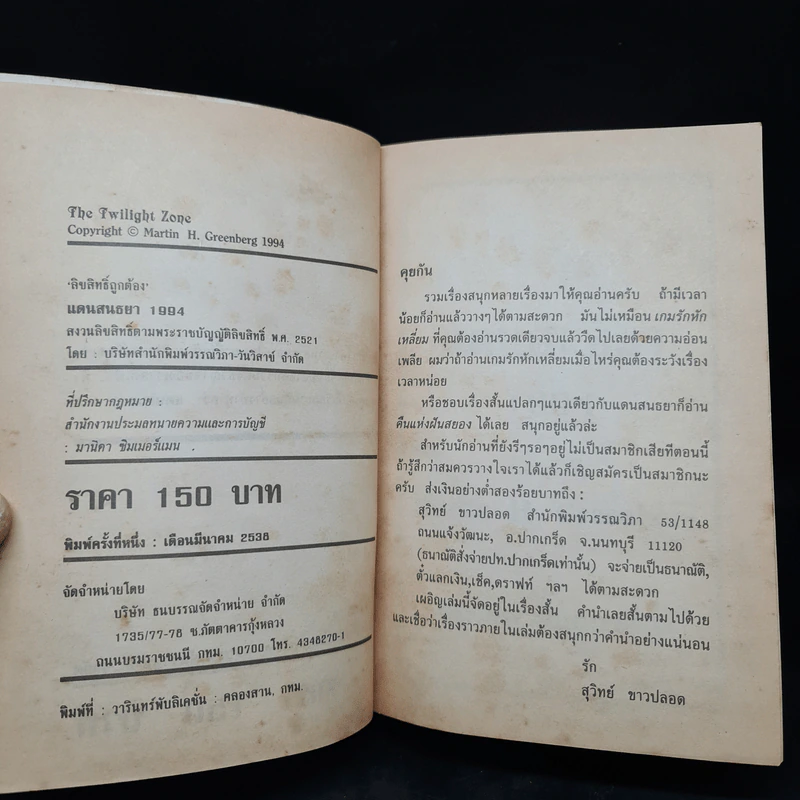 The Twilight Zone
Copyright © Martin H. Greenberg 1994
'ลิขสิทธิ์ถูกต้อง'
แดนสนธยา 1994
สงวนลิขสิทธิ์ตามพระราชบัญญัติลิขสิทธิ์ พ.ศ. 2521
โดย : บริษัทสำนักพิมพ์วรรณวิภา-วันวิสาข์ จำกัด
ที่ปรึกษากฎหมาย :
สำนักงานประมลทนายความและการบัญชี
: มานิคา ซิมเมอร์แมน .
ราคา 150 บาท
พิมพ์ครั้งที่หนึ่ง : เดือนมีนาคม 2538
จัดจำหน่ายโดย
บริษัท ธนบรรณจัดจำหน่าย จำกัด
1735/77-78 ซ.ภัตตาคารกุ้งหลวง
ถนนบรมราชชนนี กทม. 10700 โทร. 4348270-1
พิมพ์ที่ : วารินทร์พับลิเคชั่น : คลองสาน, กทม.
คุยกัน
รวมเรื่องสนุกหลายเรื่องมาให้คุณอ่านครับ ถ้ามีเวลา
น้อยก็อ่านแล้ววางๆ ได้ตามสะดวก มันไม่เหมือน เกมรักหัก
เหลี่ยม ที่คุณต้องอ่านรวดเดียวจบแล้ววืดไปเลยด้วยความอ่อน
เพลีย ผมว่าถ้าอ่านเกมรักหักเหลี่ยมเมื่อไหร่คุณต้องระวังเรื่อง
เวลาหน่อย
หรือชอบเรื่องสั้นแปลกๆแนวเดียวกับแดนสนธยาก็อ่าน
คืนแห่งฝันสยอง ได้เลย สนุกอยู่แล้วล่ะ
สำหรับนักอ่านที่ยังรีๆรอๆอยู่ไม่เป็นสมาชิกเสียทีตอนนี้
ถ้ารู้สึกว่าสมควรวางใจเราได้แล้วก็เชิญสมัครเป็นสมาชิกนะ
ครับ ส่งเงินอย่างต่ำสองร้อยบาทถึง :
สุวิทย์ ขาวปลอด สำนักพิมพ์วรรณวิภา 53/1148
ถนนแจ้งวัฒนะ, อ.ปากเกร็ด จ.นนทบุรี 11120
(ธนาณัติสั่งจ่ายปท.ปากเกร็ดเท่านั้น) จะจ่ายเป็นธนาณัติ,
ตั๋วแลกเงิน,เช็ค,ดราฟท์ ฯลฯ ได้ตามสะดวก
เผอิญเล่มนี้จัดอยู่ในเรื่องสั้น คำนำเลยสั้นตามไปด้วย
และเชื่อว่าเรื่องราวภายในเล่มต้องสนุกกว่าคำนำอย่างแน่นอน
รัก
สุวิทย์ ขาวปลอด